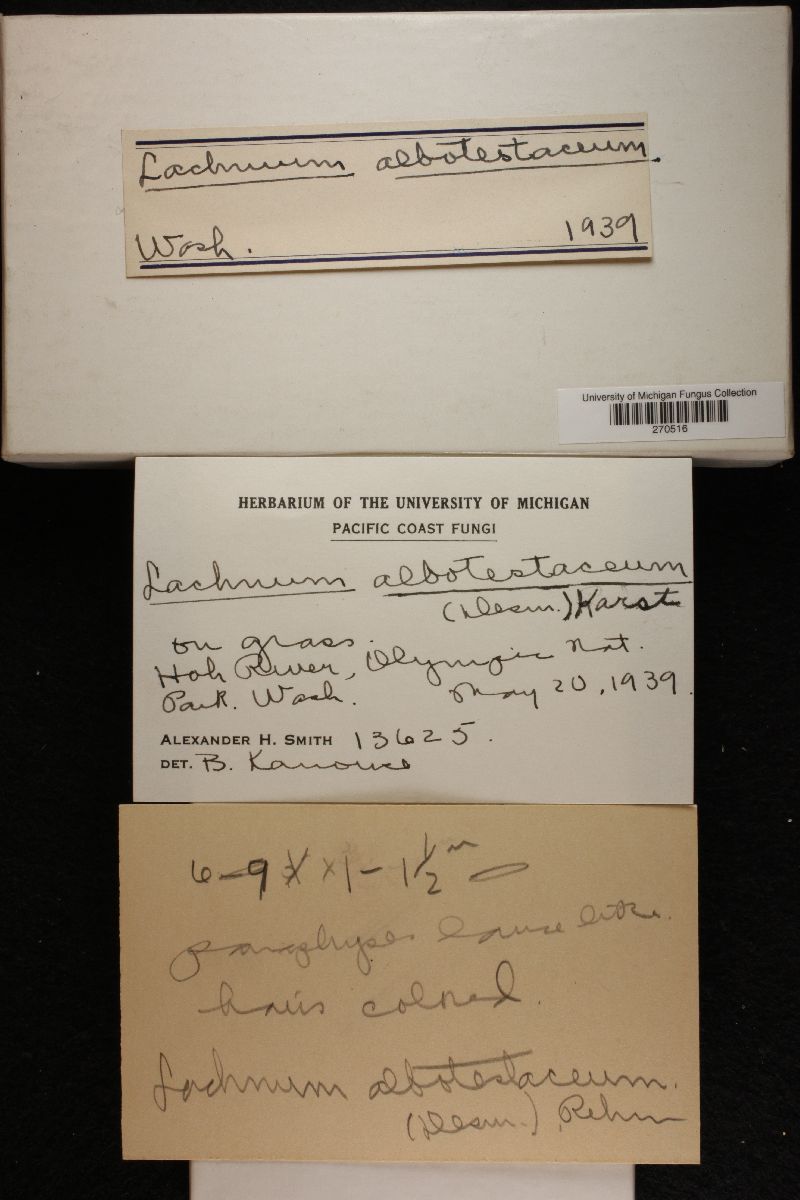 Lachnum albotestaceum.
Wash. 1939
University of Michigan Fungus Collection
270516
HERBARIUM OF THE UNIVERSITY OF MICHIGAN
PACIFIC COAST FUNGI
Lachnum albotestaceum
(Desm.) Karst
on grass.
Hoh River, Olympic Nat.
Park. Wash. May 20, 1939.
ALEXANDER H. SMITH 13625.
DET. B. Kanouse
6-9 x 1-1 1/2
paraphyses lance like.
hairs colored.
Lachnum albotestaceum.
(Desm.) Rehm